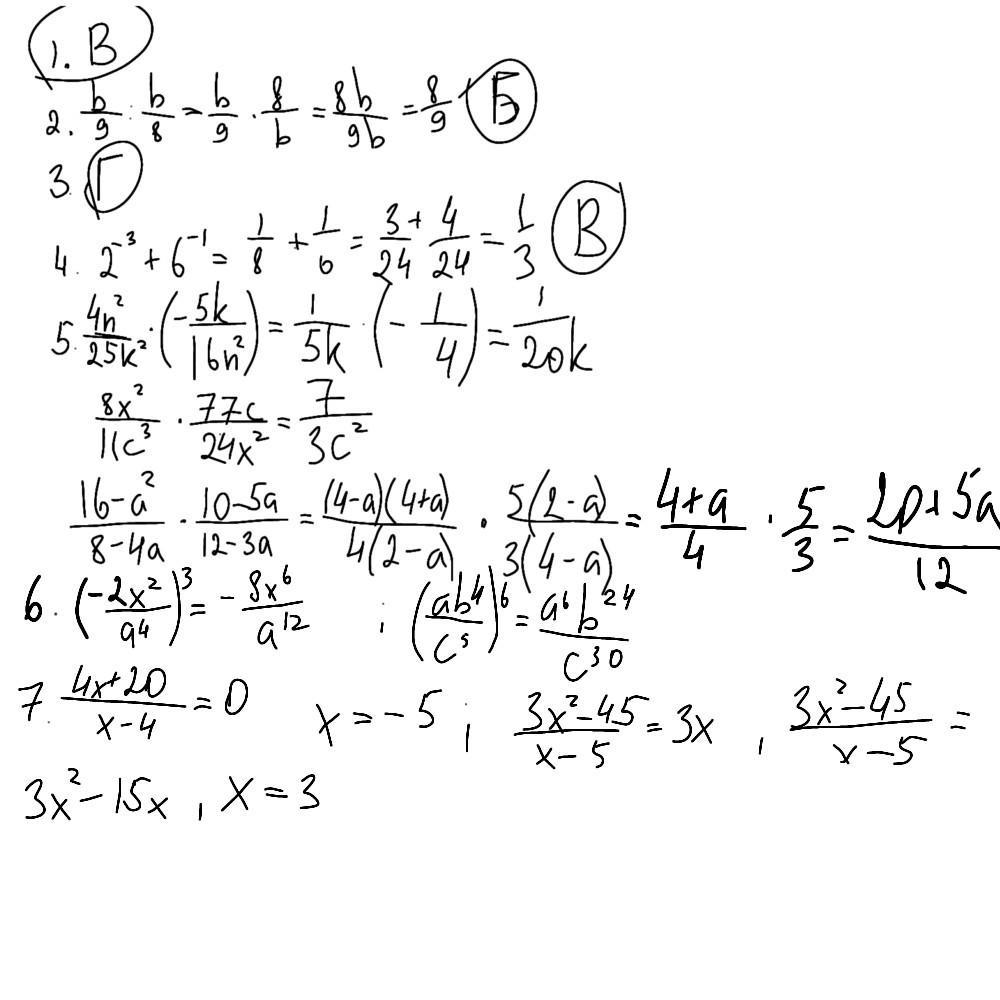 1. В
2. b/9 : b/8 = b/9 · 8/b = 8b/9b = 8/9 Б
3. Г
4. 2⁻³ + 6⁻¹ = 1/8 + 1/6 = 3/24 + 4/24 = 1/3 В
5. 4n²/25k² · (-5k/16n²) = 1/5k · (-1/4) = 1/20k
8x²/11c³ · 77c/24x² = 7/3c²
16-a²/8-4a · 10-5a/12-3a = (4-a)(4+a)/4(2-a) · 5(2-a)/3(4-a) = 4+a/4 · 5/3 = 20+5a/12
6. (-2x²/a⁴)³ = - 8x⁶/a¹² ; (ab⁴/c⁵)⁶ = a⁶b²⁴/c³⁰
7. 4x+20/x-4 = 0 x = -5 ; 3x²-45/x-5 = 3x , 3x²-45/x-5 =
3x²-15x , x = 3